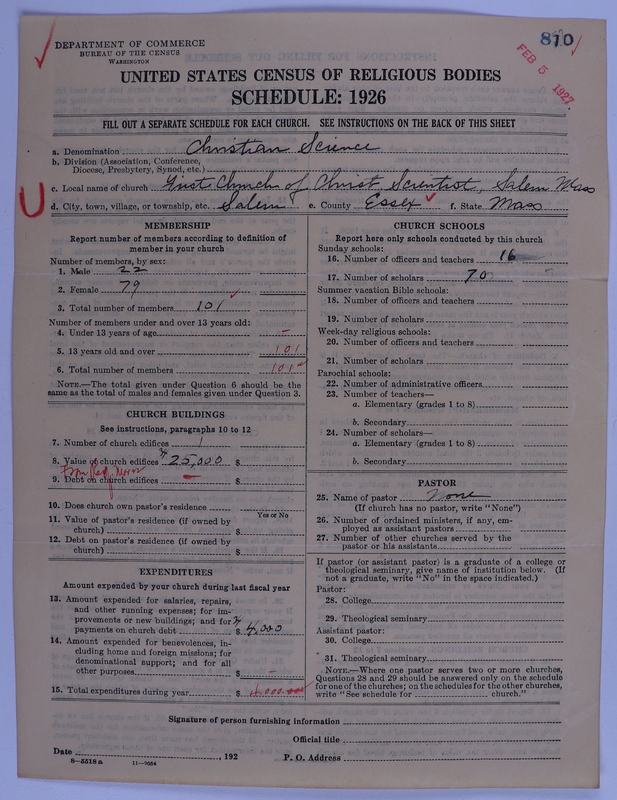 810
FEB 5 1927
DEPARTMENT OF COMMERCE
BUREAU OF THE CENSUS
WASHINGTON
UNITED STATES CENSUS OF RELIGIOUS BODIES
SCHEDULE: 1926
FILL OUT A SEPARATE SCHEDULE FOR EACH CHURCH. SEE INSTRUCTIONS ON THE BACK OF THIS SHEET
a. Denomination Christian Science
b. Division (Association, Conference,
Diocese, Presbytery, Synod, etc.)
c. Local name of church First Church of Christ, Scientist, Salem Mass
U
d. City, town, village, or township, etc. Salem e. County Essex f. State Mass
MEMBERSHIP
Report number of members according to definition of
member in your church
Number of members, by sex:
1. Male 22
2. Female 79
3. Total number of members 101
Number of members under and over 13 years old:
4. Under 13 years of age –
5. 13 years old and over 101
6. Total number of members 101
NOTE.—The total given under Question 6 should be the
same as the total of males and females given under Question 3.
CHURCH BUILDINGS
See instructions, paragraphs 10 to 12
7. Number of church edifices 1
8. Value of church edifices 25,000 $
9. Debt on church edifices – $
10. Does church own pastor's residence
Yes or No
11. Value of pastor's residence (if owned by
church) $
12. Debt on pastor's residence (if owned by
church) $
EXPENDITURES
Amount expended by your church during last fiscal year
13. Amount expended for salaries, repairs,
and other running expenses; for im-
provements or new buildings; and for
payments on church debt $ 4,000
14. Amount expended for benevolences, in-
cluding home and foreign missions; for
denominational support; and for all
other purposes $ –
15. Total expenditures during year $ 4,000.00
CHURCH SCHOOLS
Report here only schools conducted by this church
Sunday schools:
16. Number of officers and teachers 16
17. Number of scholars 70
Summer vacation Bible schools:
18. Number of officers and teachers
19. Number of scholars
Week-day religious schools:
20. Number of officers and teachers
21. Number of scholars
Parochial schools:
22. Number of administrative officers
23. Number of teachers—
a. Elementary (grades 1 to 8)
b. Secondary
24. Number of scholars—
a. Elementary (grades 1 to 8)
b. Secondary
PASTOR
25. Name of pastor None
(If church has no pastor, write "None")
26. Number of ordained ministers, if any, em-
ployed as assistant pastors
27. Number of other churches served by the
pastor or his assistants
If pastor (or assistant pastor) is a graduate of a college or
theological seminary, give name of institution below. (If
not a graduate, write "No" in the space indicated.)
Pastor:
28. College
29. Theological seminary
Assistant pastor:
30. College
31. Theological seminary
NOTE.—Where one pastor serves two or more churches,
Questions 28 and 29 should be answered only on the schedule
for one of the churches; on the schedules for the other churches,
write "See schedule for church."
Signature of person furnishing information
Official title
Date , 192 P. O. Address
8—5518a 11—9054